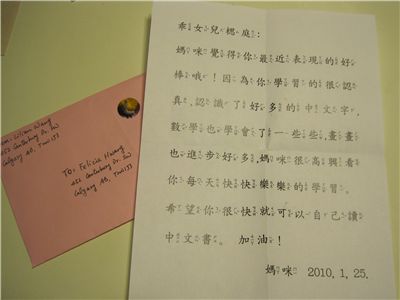 From: Lilian Wang
Calgary AB,
To: Felicia Hwang
Calgary AB,
乖女兒樱庭：
媽咪覺得你最近表現的好
棒哦！因為你學習的很認
真，認識了好多的中文字，
數學也學會了一些些，畫畫
也進步好多，媽咪很高興看
你每天快快樂樂的學習。
希望你很快就可以自己讀
中文書。 加油！
媽咪 2010. 1. 25.